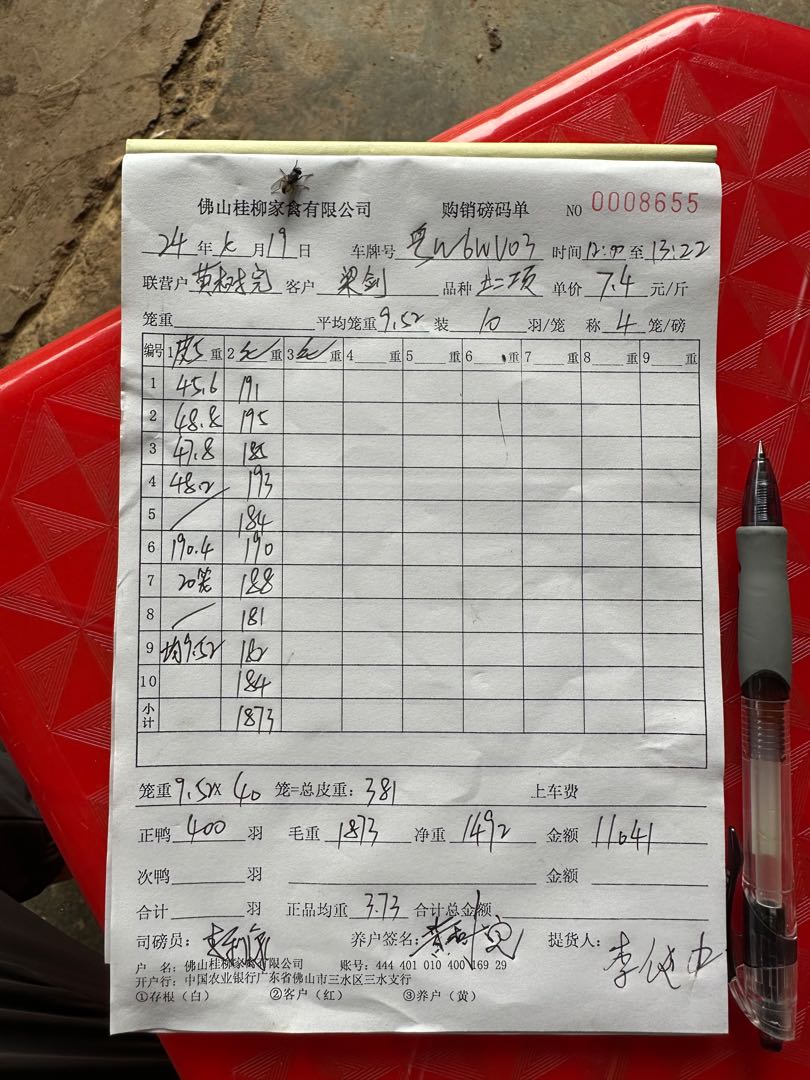 佛山桂柳家禽有限公司 购销磅码单 NO 0008655
24 年 七 月 19 日 车牌号 粤W6WV03 时间 12:00 至 13:22
联营户 黄树完 客户 梁剑 品种 单价 7.4 元/斤
笼重 平均笼重 9.52 装 10 羽/笼 称 4 笼/磅
编号 1 重 2 毛 重 3 毛 重 4 重 5 重 6 重 7 重 8 重 9 重
1 45.6 191
2 48.8 195
3 47.8 185
4 48.2 193
5 184
6 190.4 190
7 20笼 188
8 181
9 均9.52 182
10 184
小计 1873
笼重 9.52 X 40 笼=总皮重: 381 上车费
正鸭 400 羽 毛重 1873 净重 1492 金额 11041
次鸭 羽 金额
合计 羽 正品均重 3.73 合计总金额
司磅员: 养户签名: 黄树完 提货人: 李
户 名: 佛山桂柳家禽有限公司 账号: 444 401 010 400 169 29
开户行: 中国农业银行广东省佛山市三水区三水支行
①存根（白） ②客户（红） ③养户（黄）